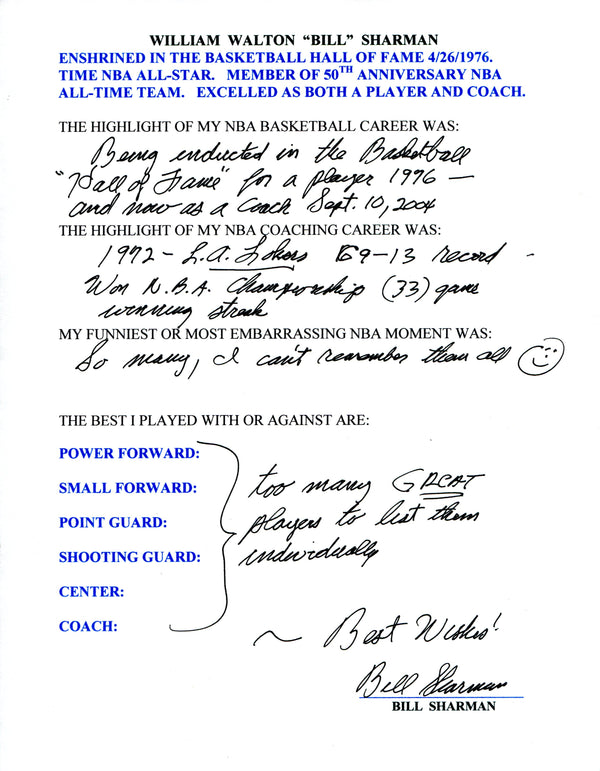 WILLIAM WALTON “BILL” SHARMAN
ENSHRINED IN THE BASKETBALL HALL OF FAME 4/26/1976.
TIME NBA ALL-STAR. MEMBER OF 50TH ANNIVERSARY NBA
ALL-TIME TEAM. EXCELLED AS BOTH A PLAYER AND COACH.
THE HIGHLIGHT OF MY NBA BASKETBALL CAREER WAS:
Being inducted in the Basketball
"Hall of Fame" for a player 1976 —
and now as a Coach Sept. 10, 2004
THE HIGHLIGHT OF MY NBA COACHING CAREER WAS:
1972 - L.A. Lakers 69-13 record -
Won N.B.A. Championship (33) game
winning streak
MY FUNNIEST OR MOST EMBARRASSING NBA MOMENT WAS:
So many, I can't remember them all
THE BEST I PLAYED WITH OR AGAINST ARE:
POWER FORWARD:
SMALL FORWARD: too many GREAT
POINT GUARD: players to list them
SHOOTING GUARD: individually
CENTER:
COACH:
~ Best Wishes!
Bill Sharman
BILL SHARMAN